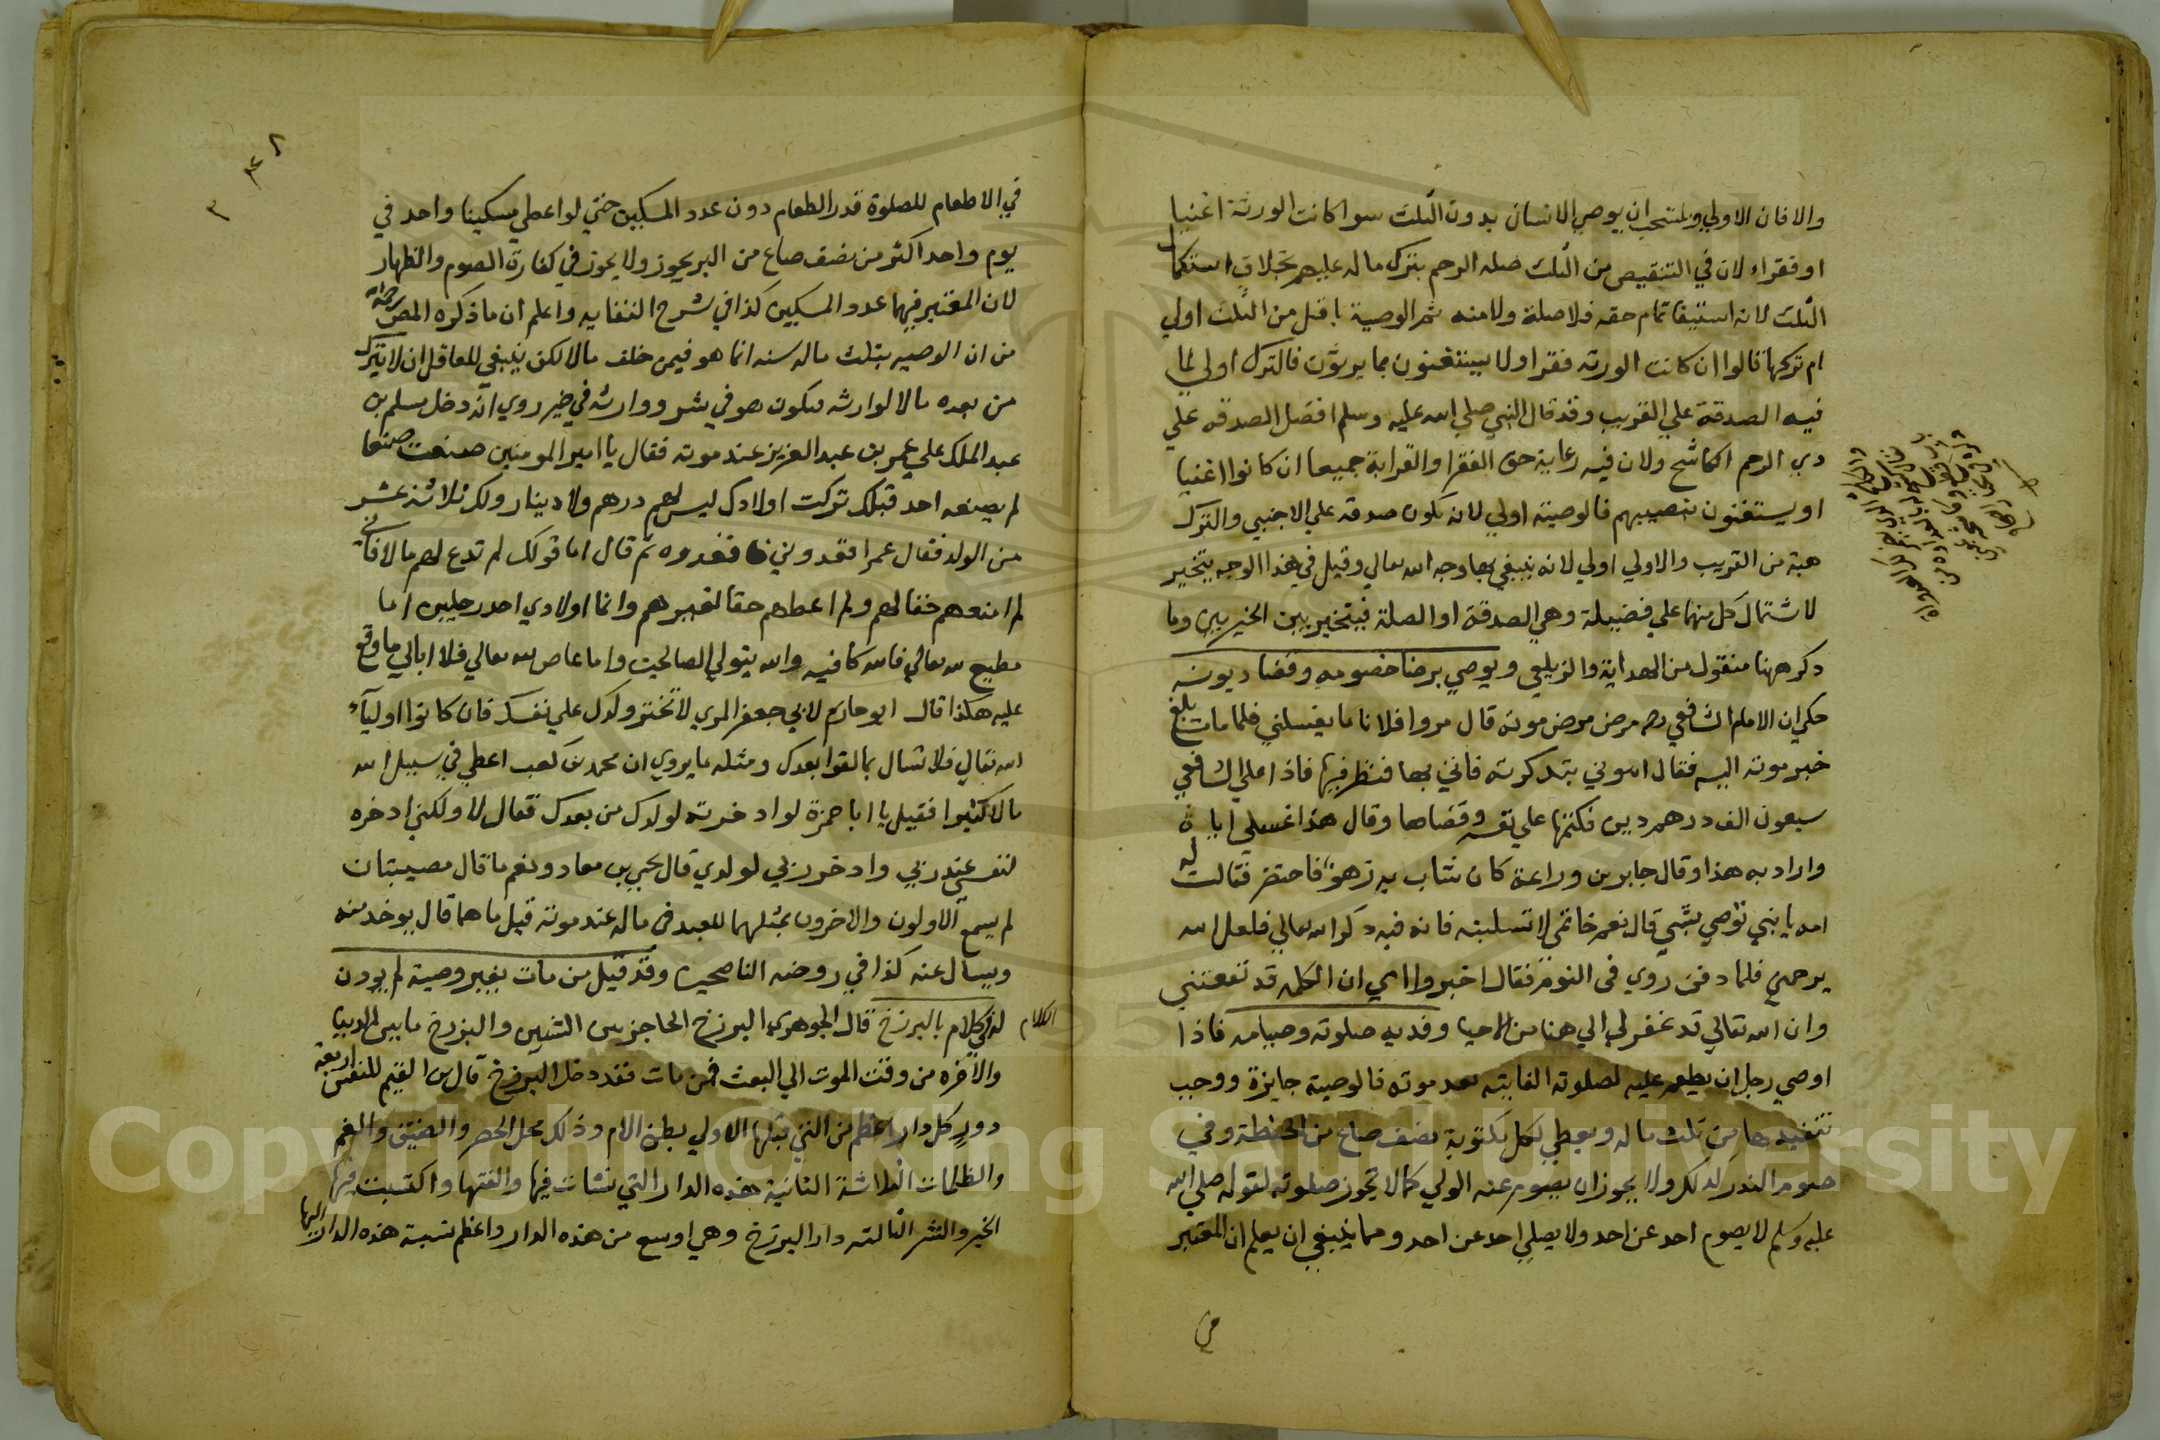 والا فان الاولي ويستحب ان يوصي الانسان بدون الثلث سوا كانت الورثة اغنيا
او فقراء لان في التنقيص من الثلث صله الرحم بترك ماله عليهم بخلاف استكمال
الثلث لانه استيفا تمام حقه فلا صلة ولا منه ثم الوصية باقل من الثلث اولي
ام تركها قالوا ان كانت الورثه فقرا ولا يستغنون بما يرثون فالترك اولي لما
فيه الصدقة علي القريب وقد قال النبي صلي الله عليه وسلم افضل الصدقه علي
دي الرحم الكاشح ولان فيه رعاية حق الفقرا والقرابة جميعا ان كانوا اغنيا
او يستغنون بنصيبهم فالوصية اولي لانه يكون صدقه علي الاجنبي والترك
هبة من القريب والاولي اولي لانه يبتغي بها وجه الله تعالي وقيل في هذا الوجه يتخير
لاشتمال كل منهما علي فضيلة وهي الصدقة او الصلة فيتخير بين الخيرين وما
دكر ههنا منقول من الهداية والزيلعي ويوصي برضا خصومه وقضا ديونه
حكي ان الامام الشافعي رح مرض مرض موته قال مروا فلانا ما يغسلني فلما مات بلغ
خبر موته اليه فقال اموني بتدكرته فاتي بها فنظر فيها فاذا علي الشافعي
سبعون الف درهم دين فكتبها علي نفسه وقضاها وقال هذا غسلي اياه
واراد به هذا وقال جابر بن وراعة كان شاب به زهو فاحتضر فقالت له
امه يا بني توصي بشي قال نعم خاتمي لا تسلبنه فانه فيه دكر الله تعالي فلعل الله
يرحمني فلما دفن روي في النوم فقال اخبروا امي ان الكلمه قد نفعتني
وان الله تعالي قد غفر لي الي هنا من الاحيا وفديه صلوته وصيامه فاذا
اوصي رجل ان يطعم عليه لصلوته الفايته بعد موته فالوصية جايزة ووجب
تنفيدها من ثلث ماله ويعطي لكل مكتوبة نصف صاع من الحنطة وفي
صوم الندر كدلك ولا يجوز ان يصوم عنه الولي كما لا تجوز صلوته لقوله صلي الله
عليه وسلم لا يصوم احد عن احد ولا يصلي احد عن احد ومما ينبغي ان يعلم ان المعتبر
في الاطعام للصلوة قدر الطعام دون عدد المسكين حتي لو اعطي مسكينا واحد في
يوم واحد اكثر من نصف صاع من البر يجوز ولا يجوز في كفارة الصوم والظهار
لان المعتبر فيهما عدد المسكين كذا في شرح النقايه واعلم ان ما ذكره المص رحمه الله
من ان الوصيه بثلث ماله سنه انما هو فيمن خلف مالا لكن ينبغي للعاقل ان لا يترك
من بعده مالا لوارثه فيكون هو في شر ووارثه في خير روي انه دخل مسلم بن
عبد الملك علي عمر بن عبد العزيز عند موته فقال يا امير المومنين صنعت صنعا
لم يصنعه احد قبلك تركت اولادك ليس لهم درهم ولا دينار ولك ثلاثة عشر
من الولد فقال عمر اقعدوني فاقعدوه ثم قال اما قولك لم تدع لهم مالا فاني
لم امنعهم حقا لهم ولم اعطهم حقا لغيرهم وانما اولادي احد رجلين اما
مطيع لله تعالي فالله كافيه والله يتولي الصالحين واما عاص لله تعالي فلا ابالي ما وقع
عليه هكذا قال ابو حازم لابي جعفر المري لا تختر ولدك علي نفسك فان كانوا اولياء
الله تعالي فلا تسال بما لقوا بعدك ومثله ما يروي ان محمد بن كعب اعطي في سبيل الله
مالا كثيرا فقيل يا ابا حمزة لو ادخرته لولدك من بعدك فقال لا ولكني ادخره
لنفسي عند ربي وادخر ربي لولدي قال يحيي بن معاد ونعم ما قال مصيبتان
لم يسمع الاولون والاخرون بمثلهما للعبد في ماله عند موته قيل ما هما قال يوخد منه
ويسال عنه كذا في روضه الناصحين وقد قيل من مات بغير وصية لم يودن
له في الكلام بالبرزخ قال الجوهري البرزخ الحاجز بين الشيين والبرزخ ما بين الدنيا
والاخره من وقت الموت الي البعث فمن مات فقد دخل البرزخ قال بن القيم للنفس اربعة
دور كل دار اعظم من التي قبلها الاولي بطن الام وذلك محل الحصر والضيق والغم
والظلمات الثلاثة الثانية هذه الدار التي نشات فيها والفتها واكتسبت فيها
الخير والشر الثالثه دار البرزخ وهي اوسع من هذه الدار واعظم نسبة هذه الدار اليها
الكلام
Copyright © King Saud University